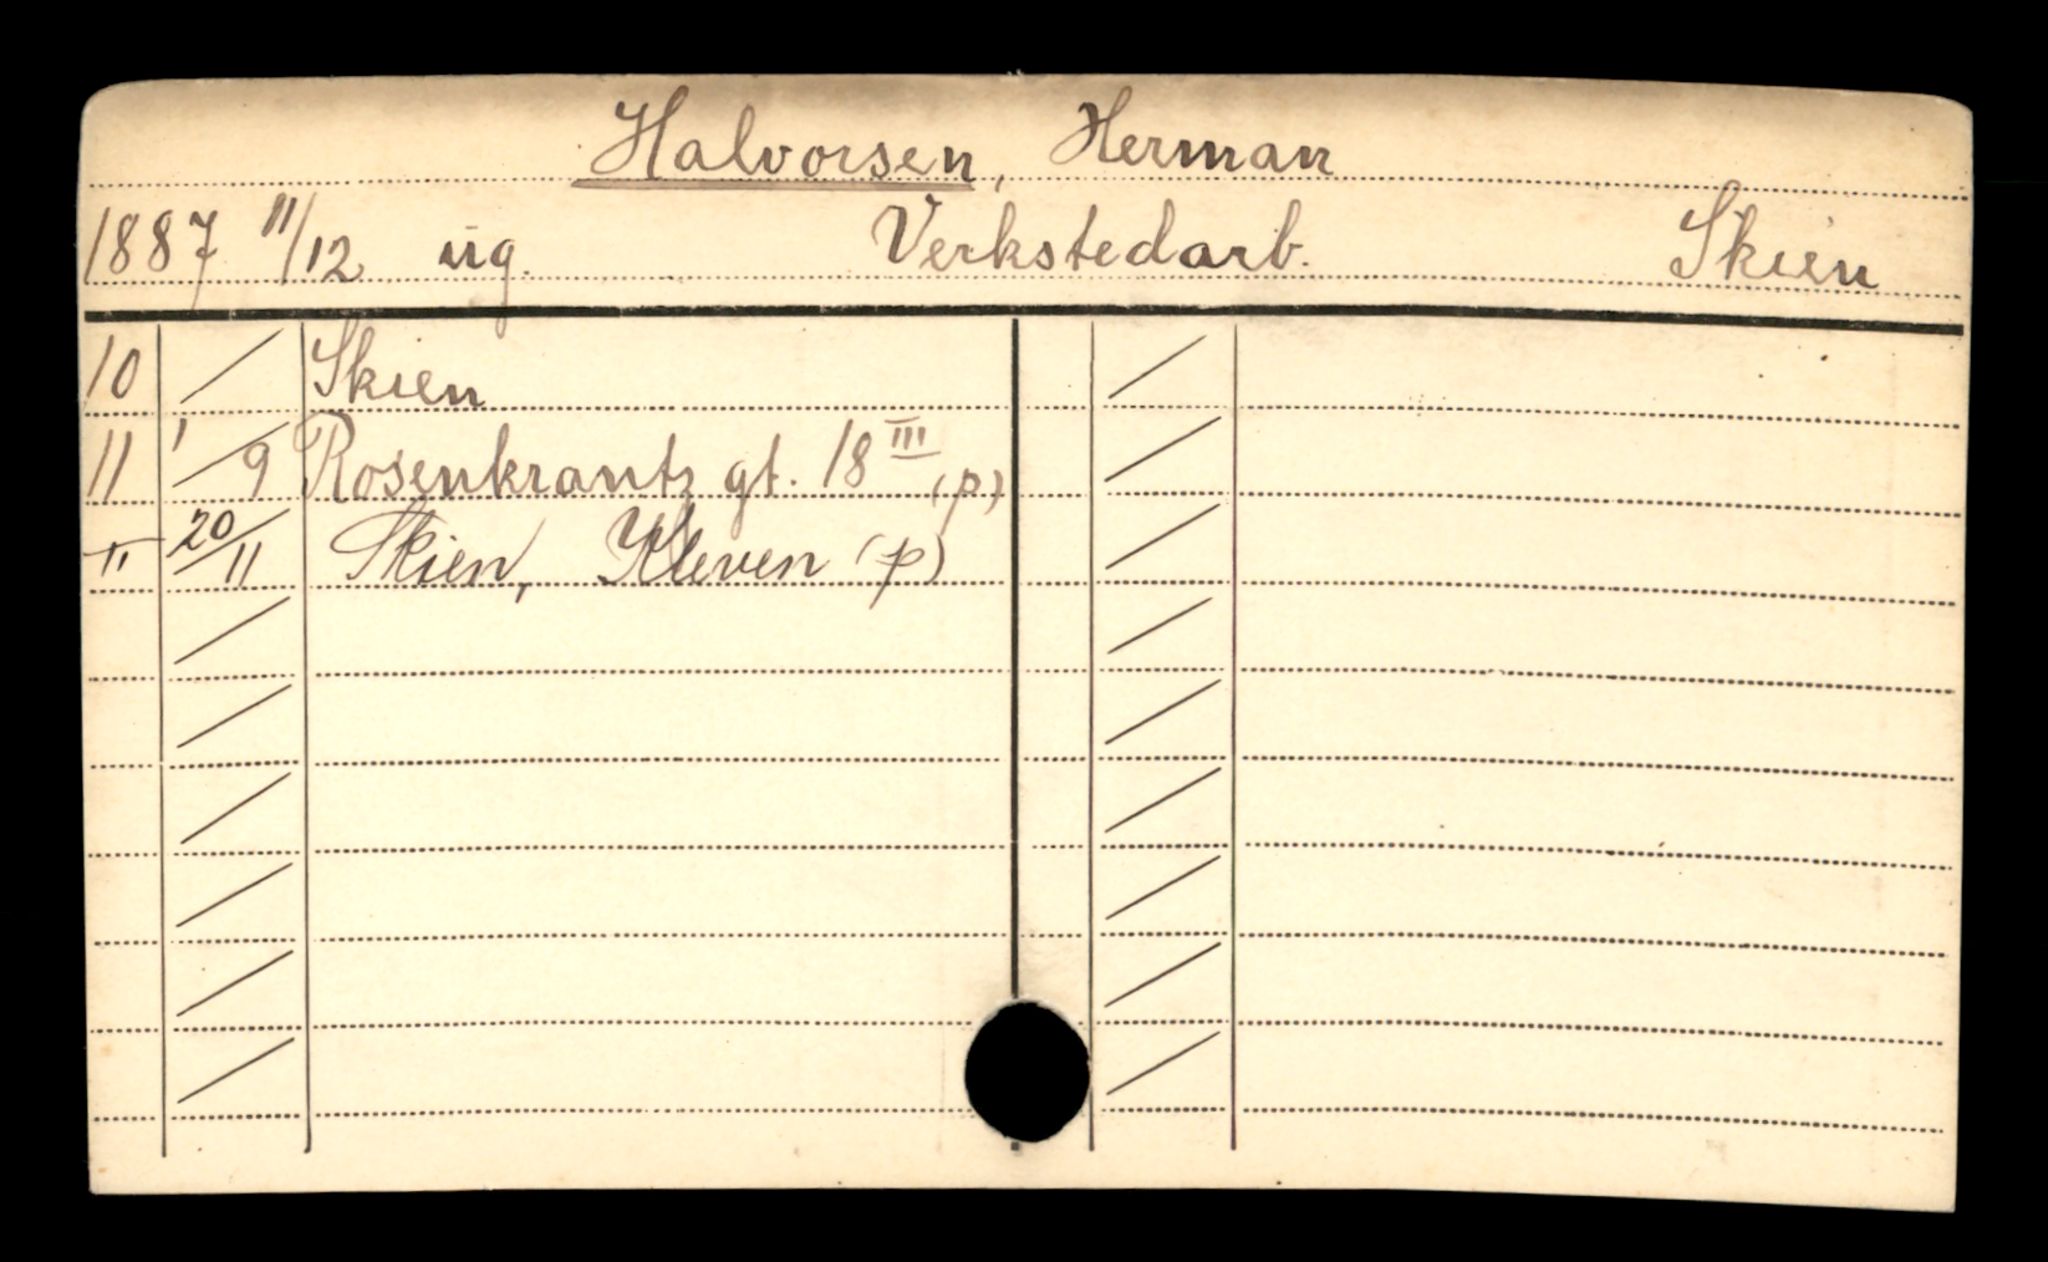 Halvorsen, Herman
1887 11/12 ug. Verkstedarb. Skien
10 / Skien
11 1/9 Rosenkrantz gt. 18 III (p)
" 20/11 Skien, Kleven (p)